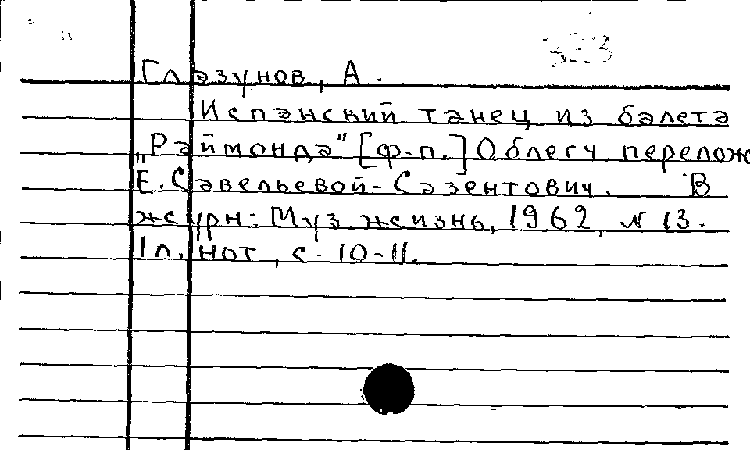 323
Глазунов, А.
Испанский танец из балета
„Раймонда" [ф-п.] Облегч перелож
Е. Савельевой-Сазентович. В
журн: Муз. жизнь, 1962, № 13.
1 л. нот, с. 10-11.